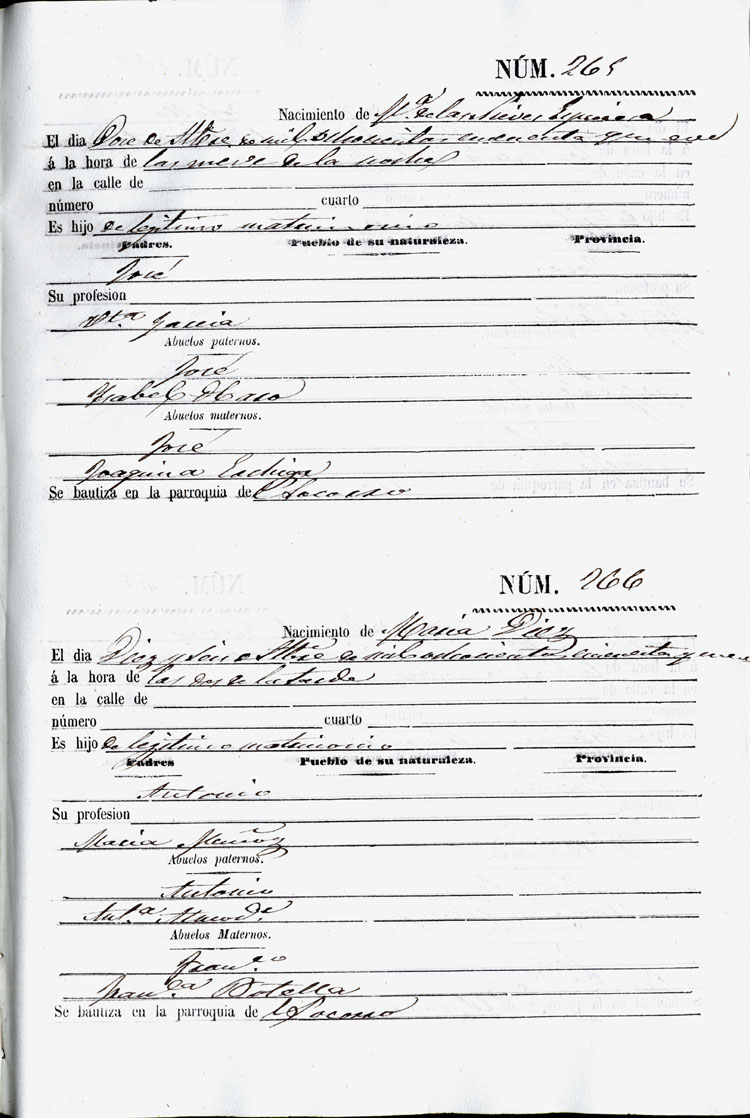 NÚM. 265
Nacimiento de M.ª de las Nieves
El dia Doce de de mil ochocientos cincuenta y nueve
á la hora de las nueve de la noche
en la calle de
número cuarto
Es hijo de legitimo matrimonio
Padres. Pueblo de su naturaleza. Provincia.
José
Su profesion
Garcia
Abuelos paternos.
José
Ysabel Haro
Abuelos maternos.
José
Joaquina
Se bautiza en la parroquia de l Socorro
NÚM. 266
Nacimiento de Maria Diez
El dia Diez y seis de mil ochocientos cincuenta y
á la hora de las dos de la tarde
en la calle de
número cuarto
Es hijo de legitimo matrimonio
Padres Pueblo de su naturaleza. Provincia.
Antonio
Su profesion
Maria Muñoz
Abuelos paternos.
Antonio
Ant.ª
Abuelos Maternos.
Fran.co
Fran.ca Botella
Se bautiza en la parroquia de l Socorro